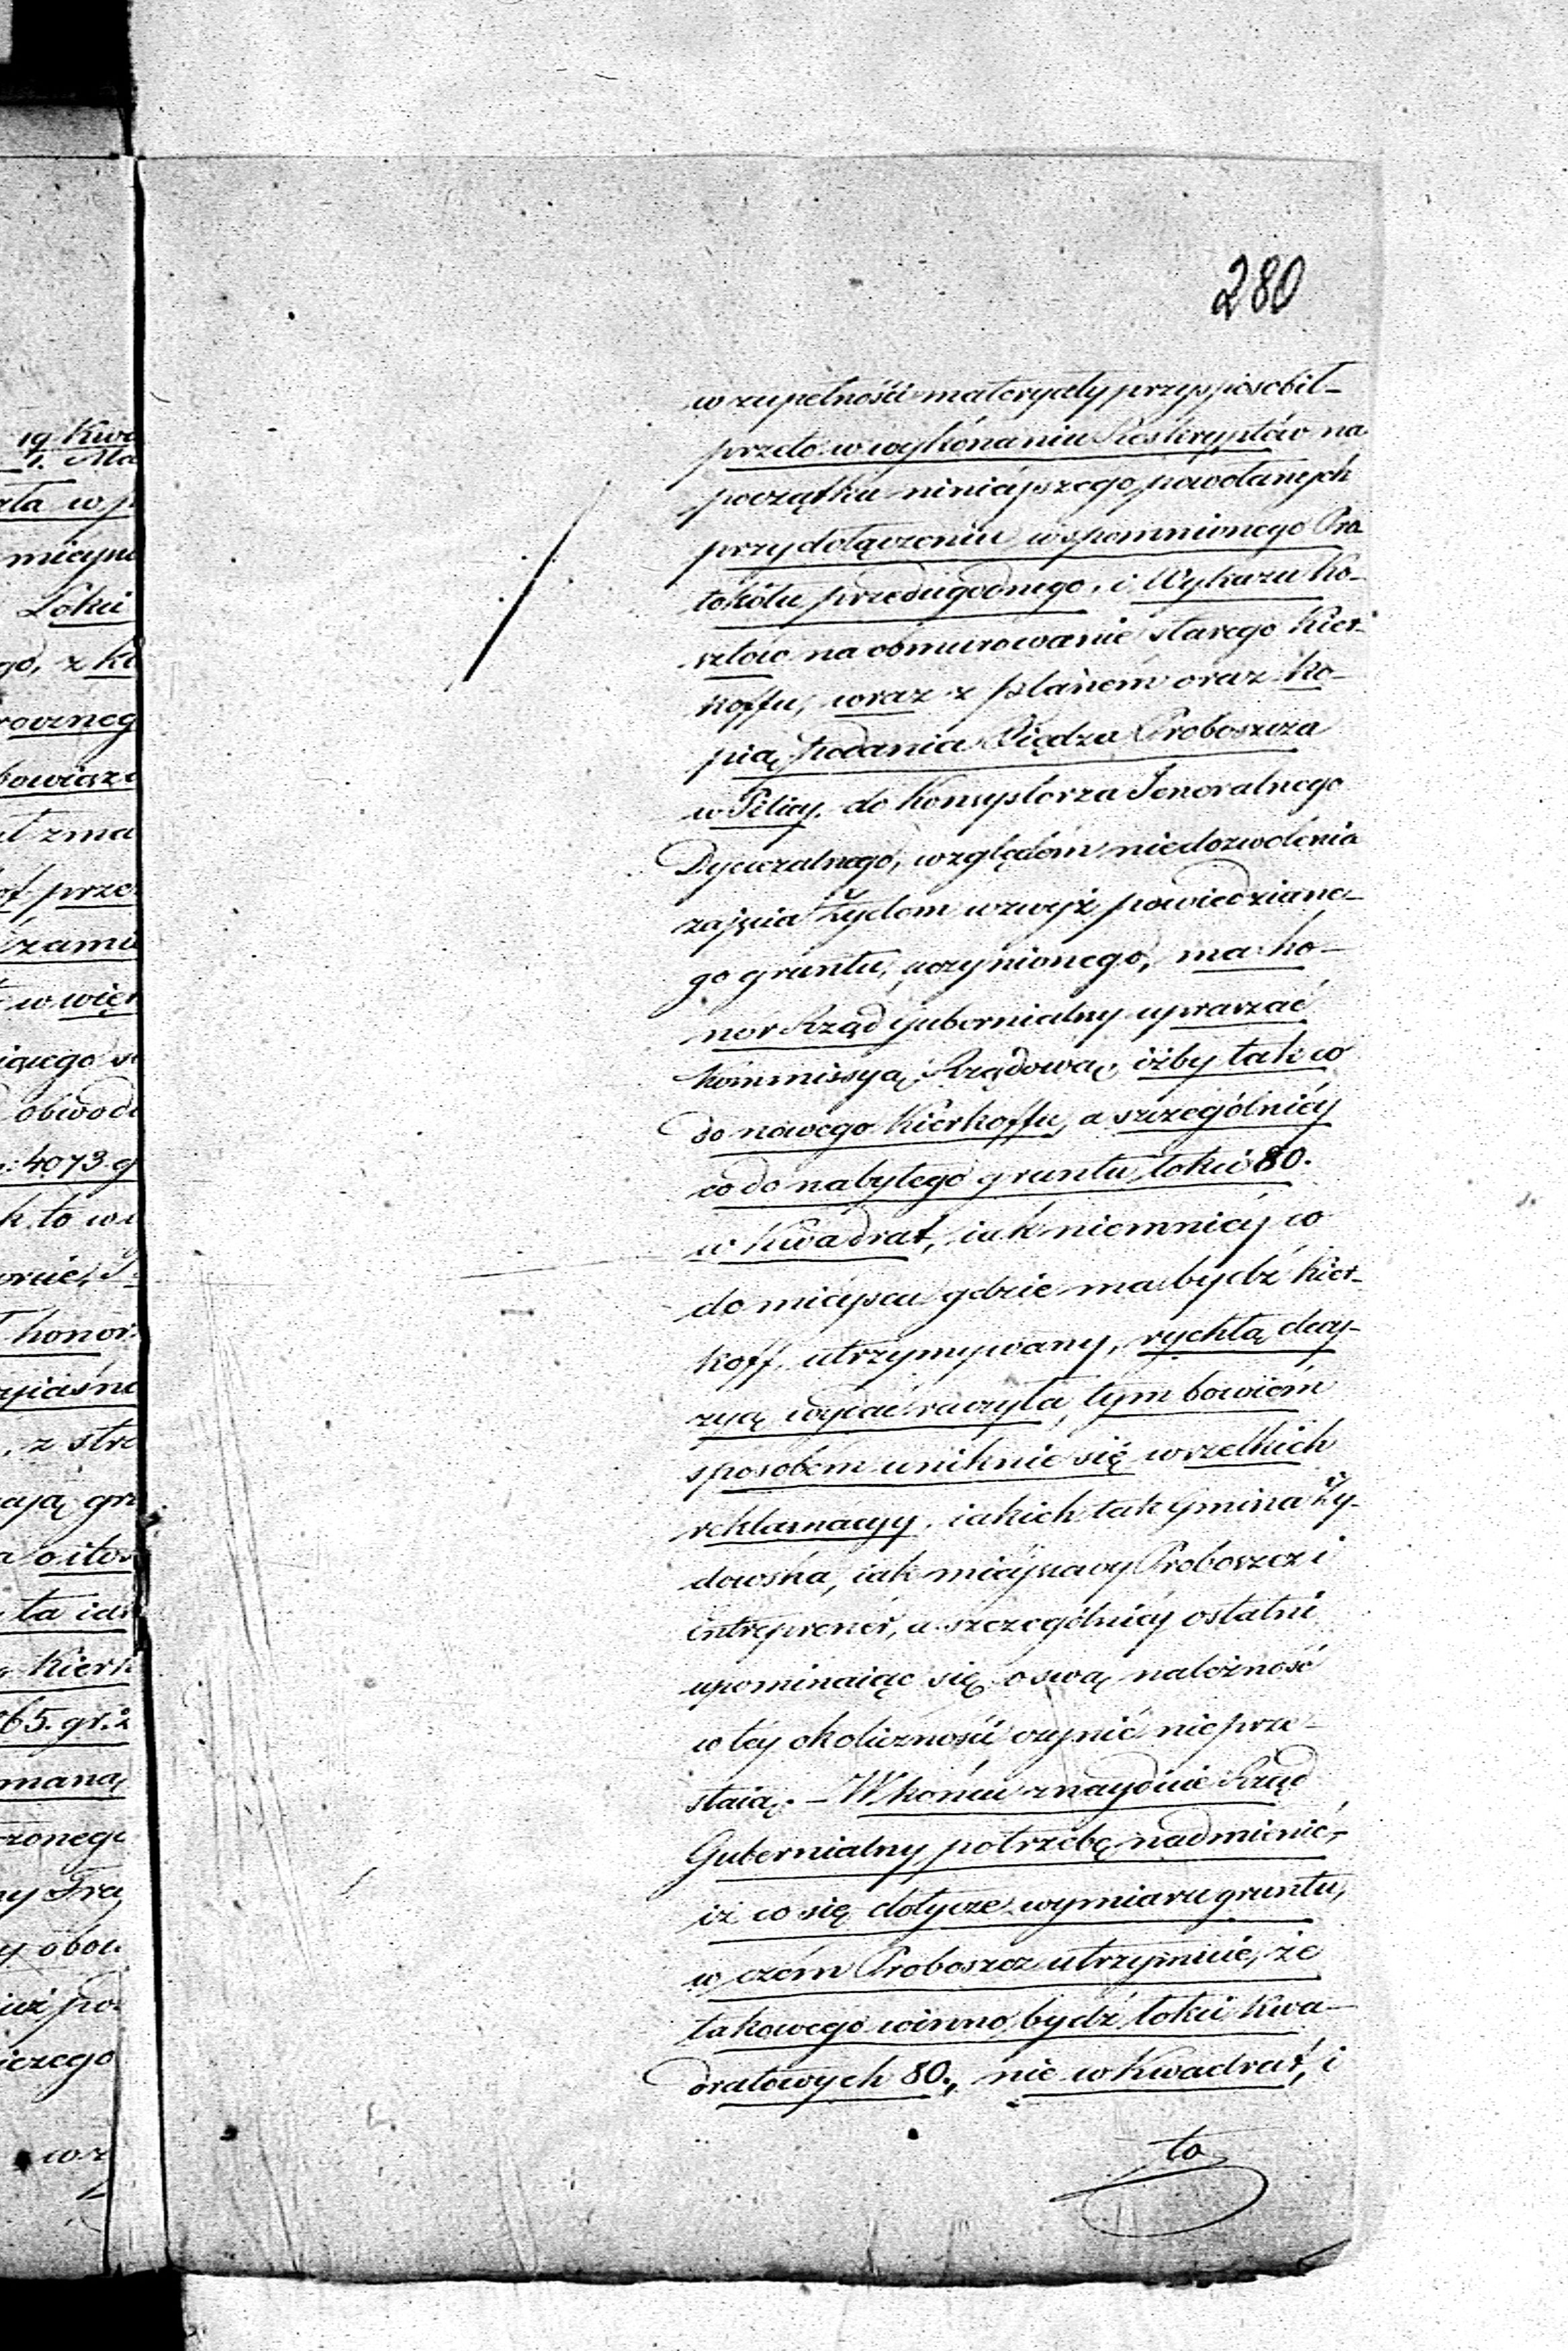 280
w zupełności materyały przysposobił—
przeto w wykonaniu Reskryptów na
początku ninieyszego powołanych
przy dołączeniu wspomnionego Pro
tokółu przedugodnego, i Wykazu ko-
sztów na obmurowanie starego Kier-
koffu, wraz z planem oraz ko-
pią Podania Xiędza Proboszcza
w Pilicy, do Konsystorza Jeneralnego
Dyecezalnego, względem niedozwolenia
zajęcia Żydom wzwyż powiedziane-
go gruntu, uczynionego, ma ho-
nor Rząd Gubernialny upraszać
Kommissyą Rządową, iżby tak co
do nowego Kierkoffu, a szczególniéy
co do nabytego gruntu łokci 80.
w Kwadrat, iak niemniéy co
do mieysca gdzie ma bydź kier-
koff utrzymywany, rychłą decy-
zyą wydać raczyła, tym bowiem
sposobem uniknie się wszelkich
reklamacyy, iakich tak Gmina Ży-
dowska, iak mieyscowy Proboszcz i
entreprener, a szczególniéy ostatni
upominaiąc się o swą należność
w téy okoliczności czynić nie prze-
staią. — W końcu znayduie Rząd
Gubernialny potrzebę nadmienić,
iż co się dotycze wymiaru gruntu,
w czém Proboszcz utrzymuie, że
takowego winno bydź łokci Kwa-
dratowych 80., nie w Kwadrat, i
to
19 Kwi
ała w p
mieysc
Łokci
go, z ki
rocznego
bowiąza
ł zma
of prze
zamie
w więk
iącego s
obwodo
4073 g
k to w
honor
wyiaśni
, z stro
aią gr
a o ilo
ta ia
Kierk
65. gr. 2
maną
czonego
y obow
iuż po
iczego
w z